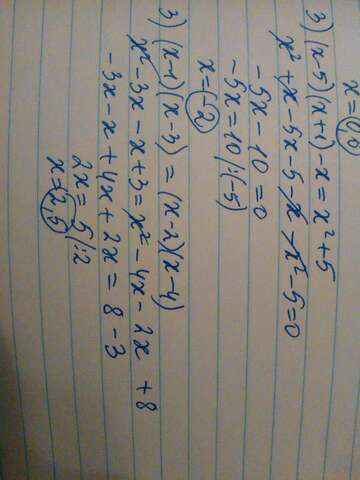 x = 0,6
3) (x-5)(x+1)-x = x²+5
x² + x - 5x - 5 - x - x² - 5 = 0
-5x - 10 = 0
-5x = 10 /:(-5)
x = -2
3) (x-1)(x-3) = (x-2)(x-4)
x² - 3x - x + 3 = x² - 4x - 2x + 8
-3x - x + 4x + 2x = 8 - 3
2x = 5 /:2
x = 2,5